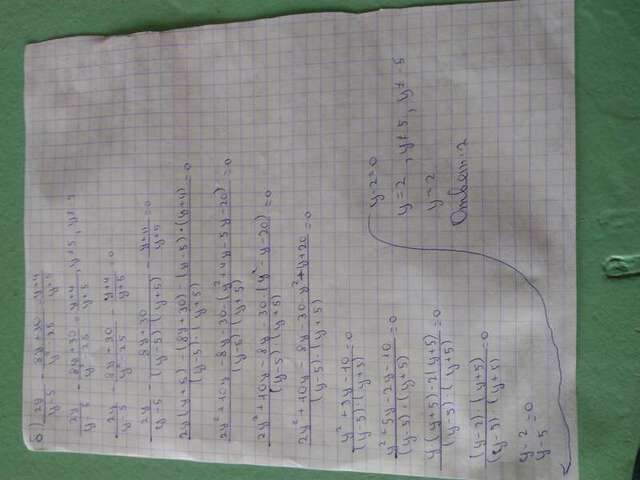 б) 2y/(y-5) - (8y+30)/(y²-25) = (y+4)/(y+5)
2y/(y-5) - (8y+30)/(y²-25) = (y+4)/(y+5), y≠5, y≠-5
2y/(y-5) - (8y+30)/(y²-25) - (y+4)/(y+5) = 0
2y/(y-5) - (8y+30)/((y-5)·(y+5)) - (y+4)/(y+5) = 0
(2y(y+5)-(8y+30)-(y-5)·(y+4))/((y-5)·(y+5)) = 0
(2y²+10y-8y-30-(y²+4y-5y-20))/((y-5)·(y+5)) = 0
(2y²+10y-8y-30-(y²-y-20))/((y-5)·(y+5)) = 0
(2y²+10y-8y-30-y²+y+20)/((y-5)·(y+5)) = 0
(y²+3y-10)/((y-5)·(y+5)) = 0
(y²+5y-2y-10)/((y-5)·(y+5)) = 0
(y(y+5)-2(y+5))/((y-5)·(y+5)) = 0
((y-2)·(y+5))/((y-5)·(y+5)) = 0
(y-2)/(y-5) = 0
y-2=0
y=2, y≠5, y≠-5
y=2
Ответ: 2